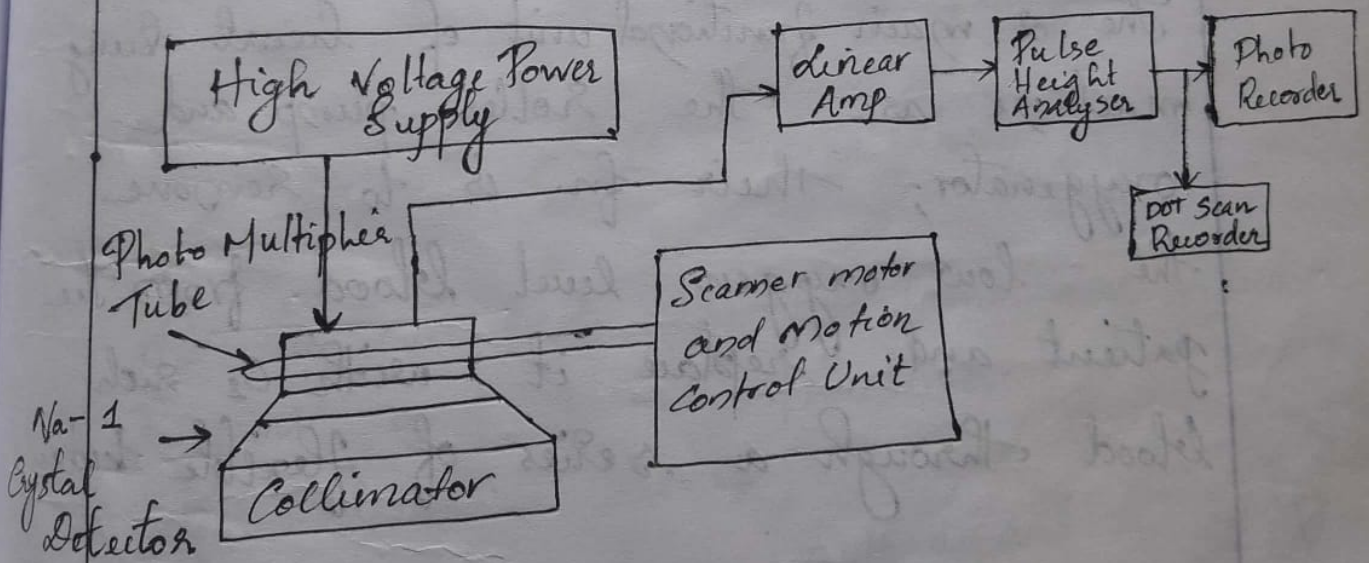 High Voltage Power
Supply
Linear
Amp
Pulse
Height
Analyser
Photo
Recorder
DOT Scan
Recorder
Photo Multiplier
Tube
Scanner motor
and Motion
Control Unit
Na-1
Crystal
Detector
Collimator